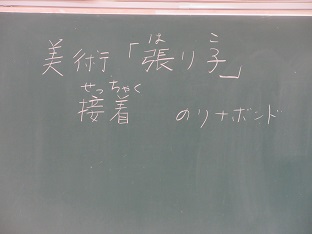 美術「張り子」
は こ
接着 のりナボンド
せっちゃく